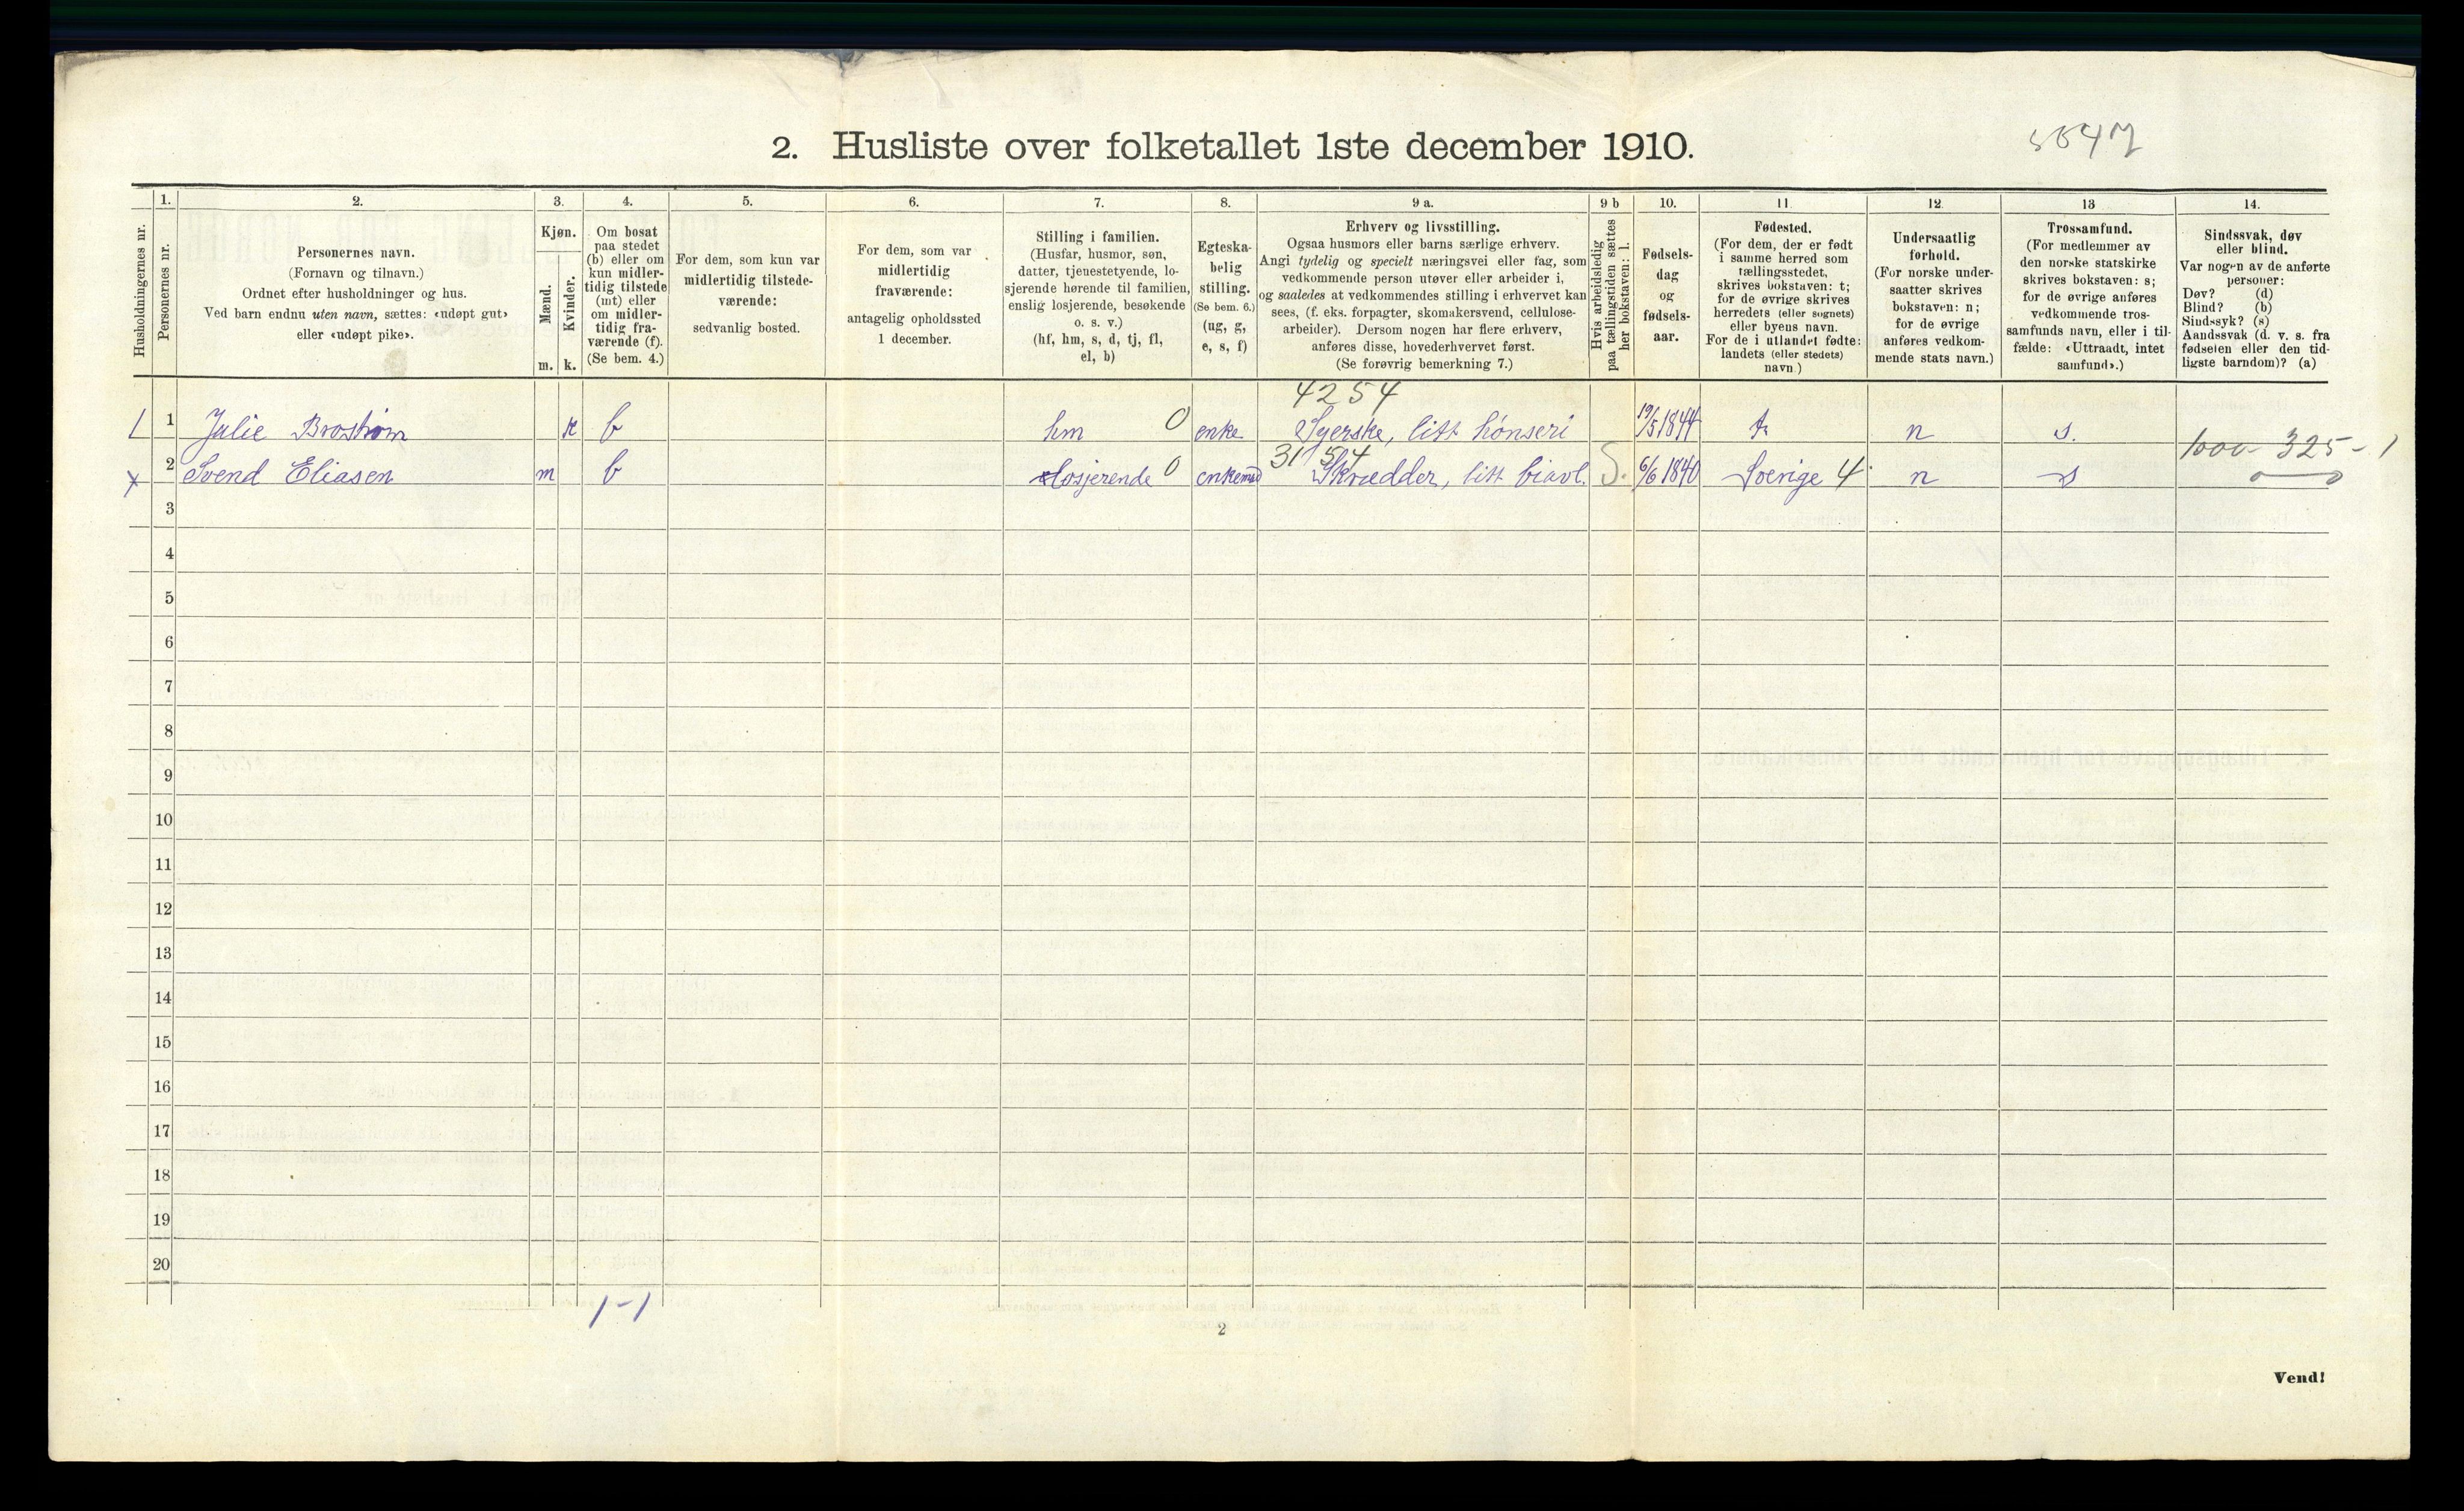 2. Husliste over folketallet 1ste december 1910.
Husholdningernes nr.
1.
Personernes nr.
2.
Personernes navn.
(Fornavn og tilnavn.)
Ordnet efter husholdninger og hus.
Ved barn endnu uten navn, sættes: «udøpt gut»
eller «udøpt pike».
3.
Kjøn.
Mænd.
Kvinder.
m. k.
4.
Om bosat
paa stedet
(b) eller om
kun midler-
tidig tilstede
(mt) eller
om midler-
tidig fra-
værende (f).
(Se bem. 4.)
5.
For dem, som kun var
midlertidig tilstede-
værende:
sedvanlig bosted.
6.
For dem, som var
midlertidig
fraværende:
antagelig opholdssted
1 december.
7.
Stilling i familien.
(Husfar, husmor, søn,
datter, tjenestetyende, lo-
sjerende hørende til familien,
enslig losjerende, besøkende
o. s. v.)
(hf, hm, s, d, tj, fl,
el, b)
8.
Egteska-
belig
stilling.
(Se bem. 6.)
(ug, g,
e, s, f)
9 a.
Erhverv og livsstilling.
Ogsaa husmors eller barns særlige erhverv.
Angi tydelig og specielt næringsvei eller fag, som
vedkommende person utøver eller arbeider i,
og saaledes at vedkommendes stilling i erhvervet kan
sees, (f. eks. forpagter, skomakersvend, cellulose-
arbeider). Dersom nogen har flere erhverv,
anføres disse, hovederhvervet først.
(Se forøvrig bemerkning 7.)
9 b
Hvis arbeidsledig
paa tællingstiden sættes
her bokstaven: l.
10.
Fødsels-
dag
og
fødsels-
aar.
11.
Fødested.
(For dem, der er født
i samme herred som
tællingsstedet,
skrives bokstaven: t;
for de øvrige skrives
herredets (eller sognets)
eller byens navn.
For de i utlandet fødte:
landets (eller stedets)
navn.)
12.
Undersaatlig
forhold.
(For norske under-
saatter skrives
bokstaven: n;
for de øvrige
anføres vedkom-
mende stats navn.)
13
Trossamfund.
(For medlemmer av
den norske statskirke
skrives bokstaven: s;
for de øvrige anføres
vedkommende tros-
samfunds navn, eller i til-
fælde: «Uttraadt, intet
samfund».)
14.
Sindssvak, døv
eller blind.
Var nogen av de anførte
personer:
Døv? (d)
Blind? (b)
Sindssyk? (s)
Aandssvak (d. v. s. fra
fødselen eller den tid-
ligste barndom)? (a)
4254
1 1 Julie Brostrøm k b hm 0 enke Syerske, litt hønseri 19/5 1844 t n s.
1000- 325-1
3154
x 2 Svend Eliasen m b losjerende 0 enkemd Skrædder, litt biavl. S. 6/6 1840 Sverige 4. n s
3
4
5
6
7
8
9
10
11
12
13
14
15
16
17
18
19
20
1-1
2
Vend!